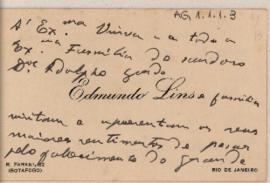 AG 1.1.1.3
A' Ex.ma Viuva e a toda a
Ex.ma Familia do saudoso
Dr. Adolpho Gordo
Edmundo Lins e familia
visitam e apresentam os seus
maiores sentimentos de pesar
pelo fallecimento do grande
(BOTAFOGO)
RIO DE JANEIRO